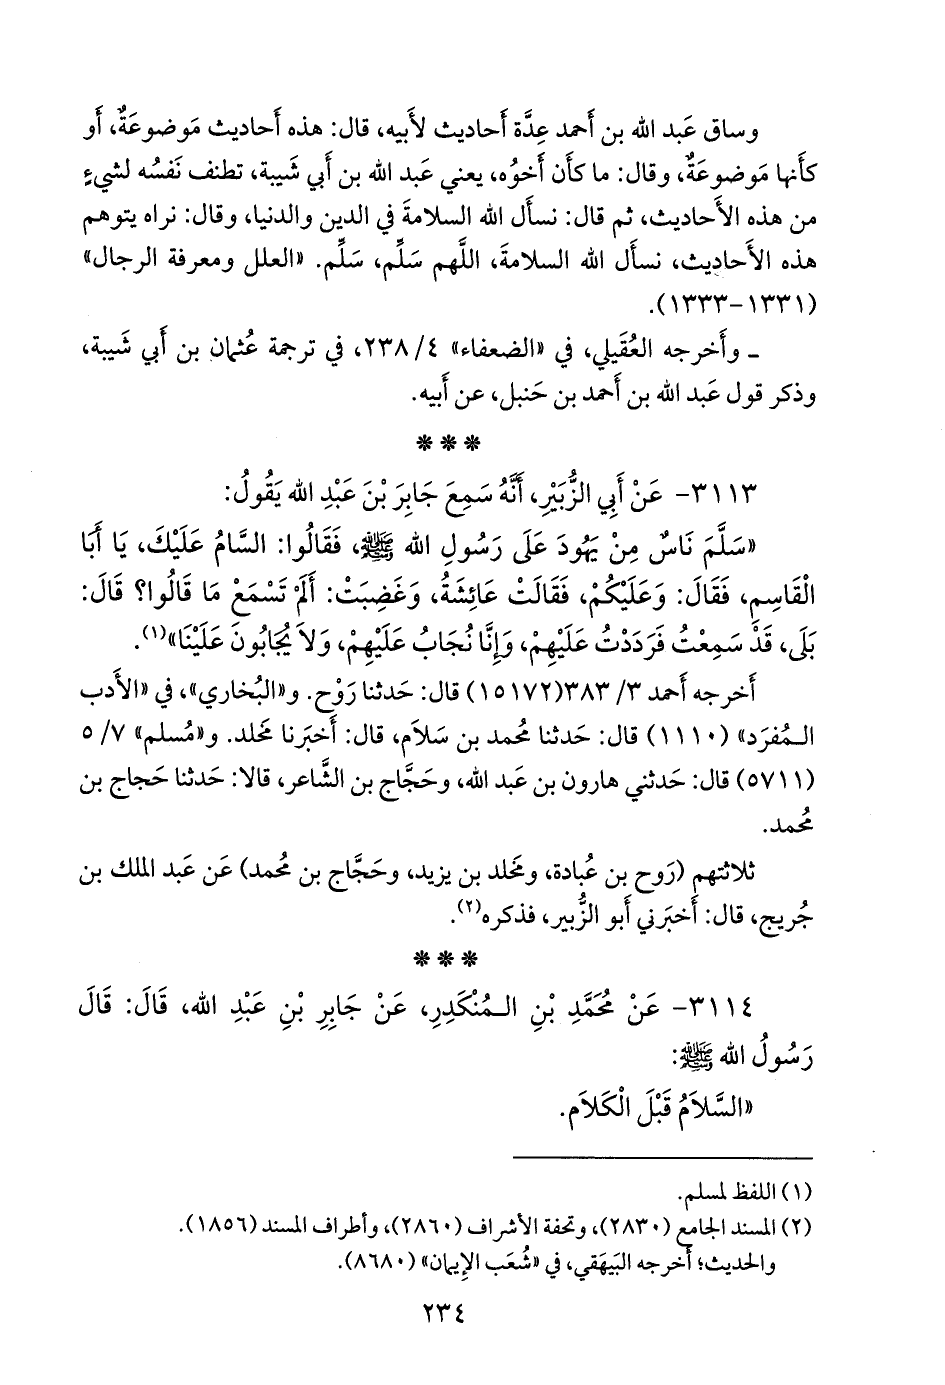 وساق عَبد الله بن أَحمد عِدَّة أَحاديث لأَبيه، قال: هذه أَحاديث مَوضوعَةٌ، أَو
كأَنها مَوضوعَةٌ، وقال: ما كأَن أَخوُه، يعني عَبد الله بن أَبي شَيبة، تطنف نَفسُه لشيءٍ
من هذه الأَحاديث، ثم قال: نسأَل الله السلامةَ في الدين والدنيا، وقال: نراه يتوهم
هذه الأَحاديث، نسأَل الله السلامةَ، اللَّهم سَلِّم، سَلِّم. «العلل ومعرفة الرجال»
(١٣٣١-١٣٣٣).
ـ وأَخرجه العُقَيلي، في «الضعفاء» ٤/ ٢٣٨، في ترجمة عُثمان بن أَبي شَيبة،
وذكر قول عَبد الله بن أَحمد بن حَنبل، عن أَبيه.
* * *
٣١١٣- عَنْ أَبِي الزُّبَيْرِ، أَنَّهُ سَمِعَ جَابِرَ بْنَ عَبْدِ الله يَقُولُ:
«سَلَّمَ نَاسٌ مِنْ يَهُودَ عَلَى رَسُولِ الله ﷺ، فَقَالُوا: السَّامُ عَلَيْكَ، يَا أَبَا
الْقَاسِمِ، فَقَالَ: وَعَلَيْكُمْ، فَقَالَتْ عَائِشَةُ، وَغَضِبَتْ: أَلَمْ تَسْمَعْ مَا قَالُوا؟ قَالَ:
بَلَى، قَدْ سَمِعْتُ فَرَدَدْتُ عَلَيْهِمْ، وَإِنَّا نُجَابُ عَلَيْهِمْ، وَلاَ يُجَابُونَ عَلَيْنَا»(١).
أَخرجه أَحمد ٣/ ٣٨٣(١٥١٧٢) قال: حَدثنا رَوْح. و«البُخاري»، في «الأَدب
المُفرَد» (١١١٠) قال: حَدثنا مُحمد بن سَلاَم، قال: أَخبَرنا مَخلد. و«مُسلم» ٧/ ٥
(٥٧١١) قال: حَدثني هارون بن عَبد الله، وحَجَّاج بن الشَّاعر، قالا: حَدثنا حَجاج بن
مُحمد.
ثلاثتهم (رَوح بن عُبادة، ومَخلد بن يزيد، وحَجَّاج بن مُحمد) عَن عَبد الملك بن
جُريج، قال: أَخبَرني أَبو الزُّبير، فذكره(٢).
* * *
٣١١٤- عَنْ مُحَمَّدِ بْنِ المُنْكَدِرِ، عَنْ جَابِرِ بْنِ عَبْدِ الله، قَالَ: قَالَ
رَسُولُ الله ﷺ:
«السَّلاَمُ قَبْلَ الْكَلاَمِ.
(١) اللفظ لمسلم.
(٢) المسند الجامع (٢٨٣٠)، وتحفة الأشراف (٢٨٦٠)، وأطراف المسند (١٨٥٦).
والحديث؛ أخرجه البَيهَقي، في «شُعَب الإيمان» (٨٦٨٠).
٢٣٤